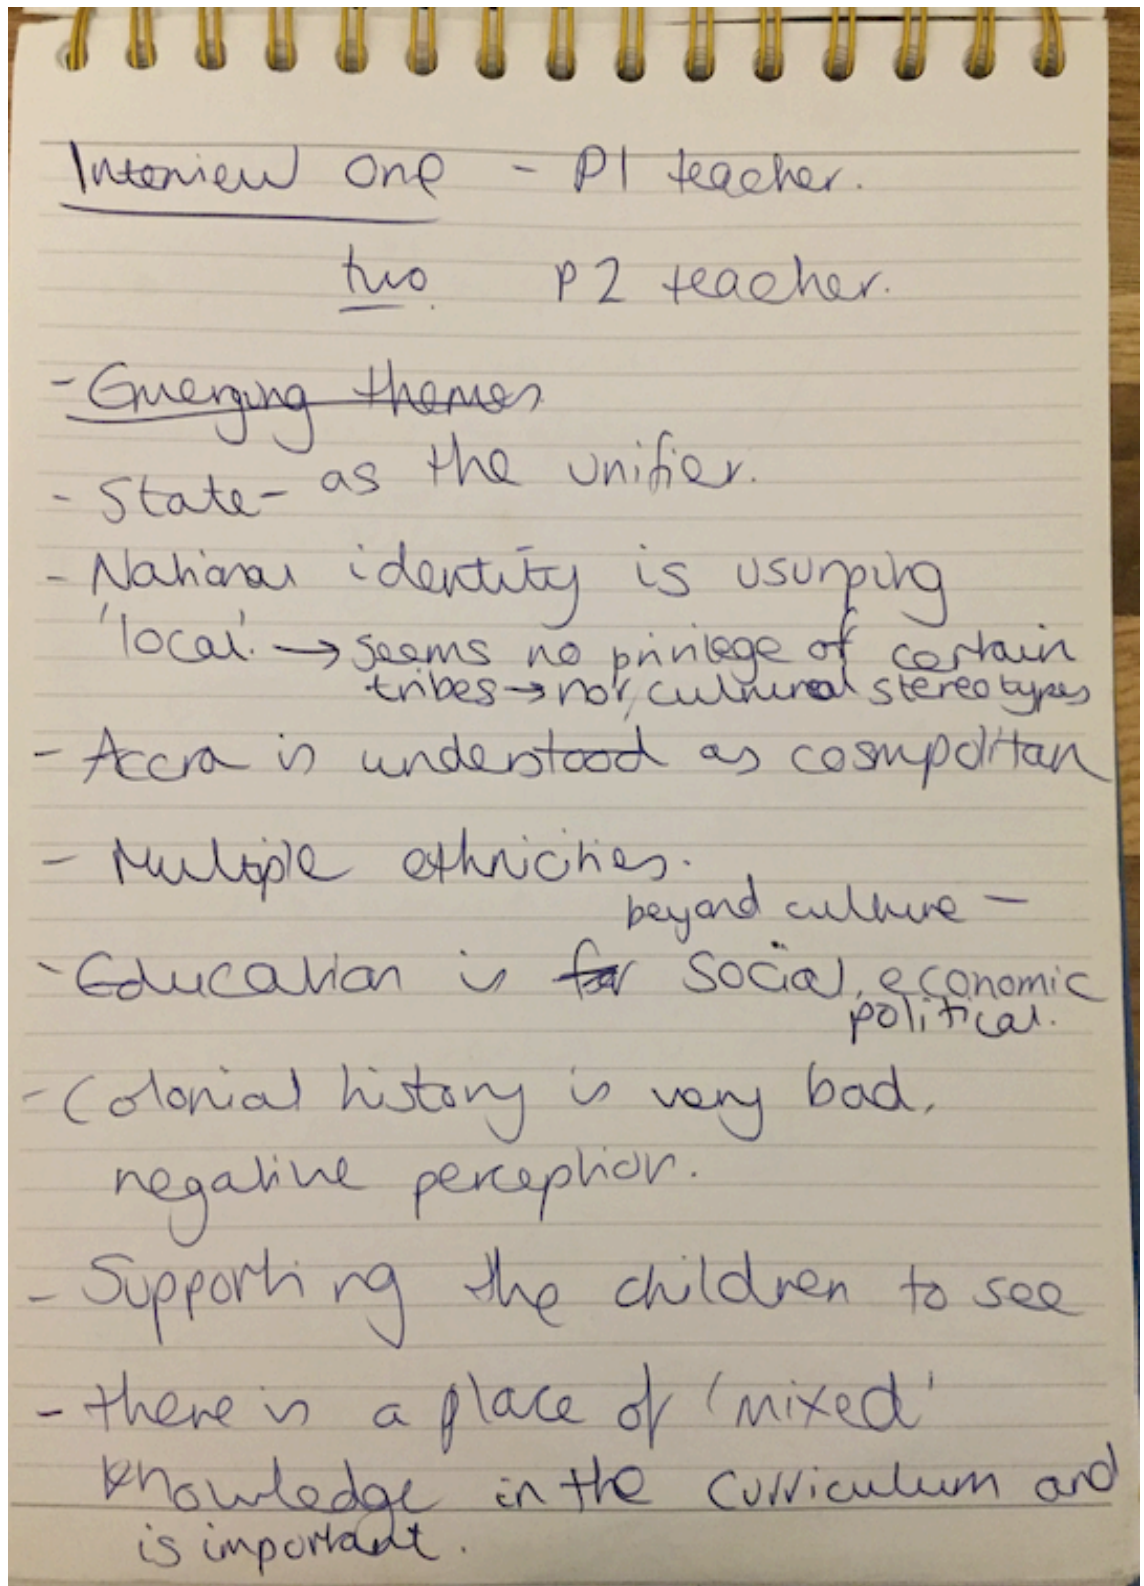 Interview One - P1 teacher.
two P2 teacher.
- Emerging themes
- State - as the unifier.
- National identity is usurping
'local'. → seems no privilege of certain
tribes → nor cultural stereotypes
- Accra is understood as cosmpolitan
- Multiple ethnicities.
beyond culture -
- Education is for social, economic
political.
- Colonial history is very bad,
negative perception.
- Supporting the children to see
- there is a place of 'mixed'
knowledge in the curriculum and
is important.